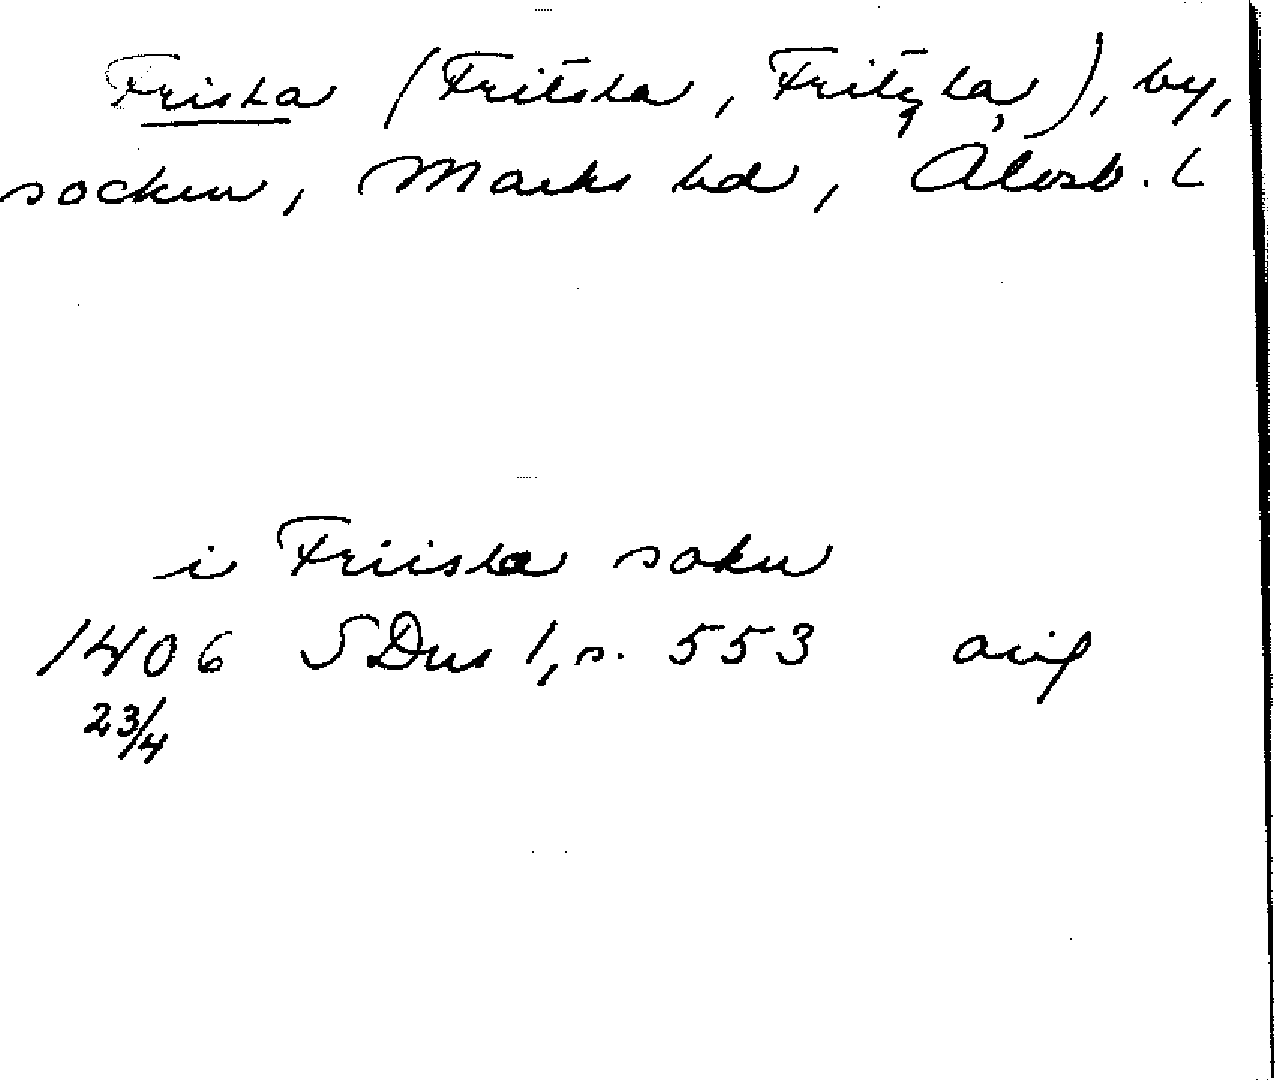 Frisla (Fritsla, Fritzla), by,
socken, Marks hd, Älvsb. l
i Friisla sokn
1406 SDns 1, s. 553 avig
23/4